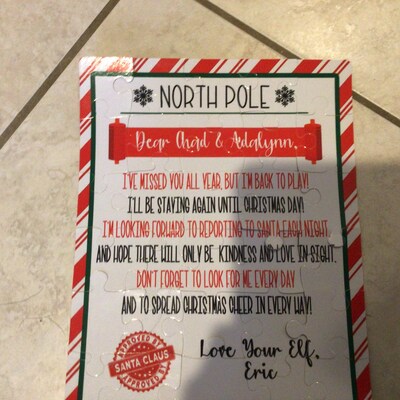 NORTH POLE
Dear Chad & Adalynn,
I'VE MISSED YOU ALL YEAR, BUT I'M BACK TO PLAY!
I'LL BE STAYING AGAIN UNTIL CHRISTMAS DAY!
I'M LOOKING FORWARD TO REPORTING TO SANTA EACH NIGHT,
AND HOPE THERE WILL ONLY BE KINDNESS AND LOVE IN SIGHT.
DON'T FORGET TO LOOK FOR ME EVERY DAY
AND TO SPREAD CHRISTMAS CHEER IN EVERY WAY!
Love Your Elf,
Eric
APPROVED BY
SANTA CLAUS
APPROVED BY